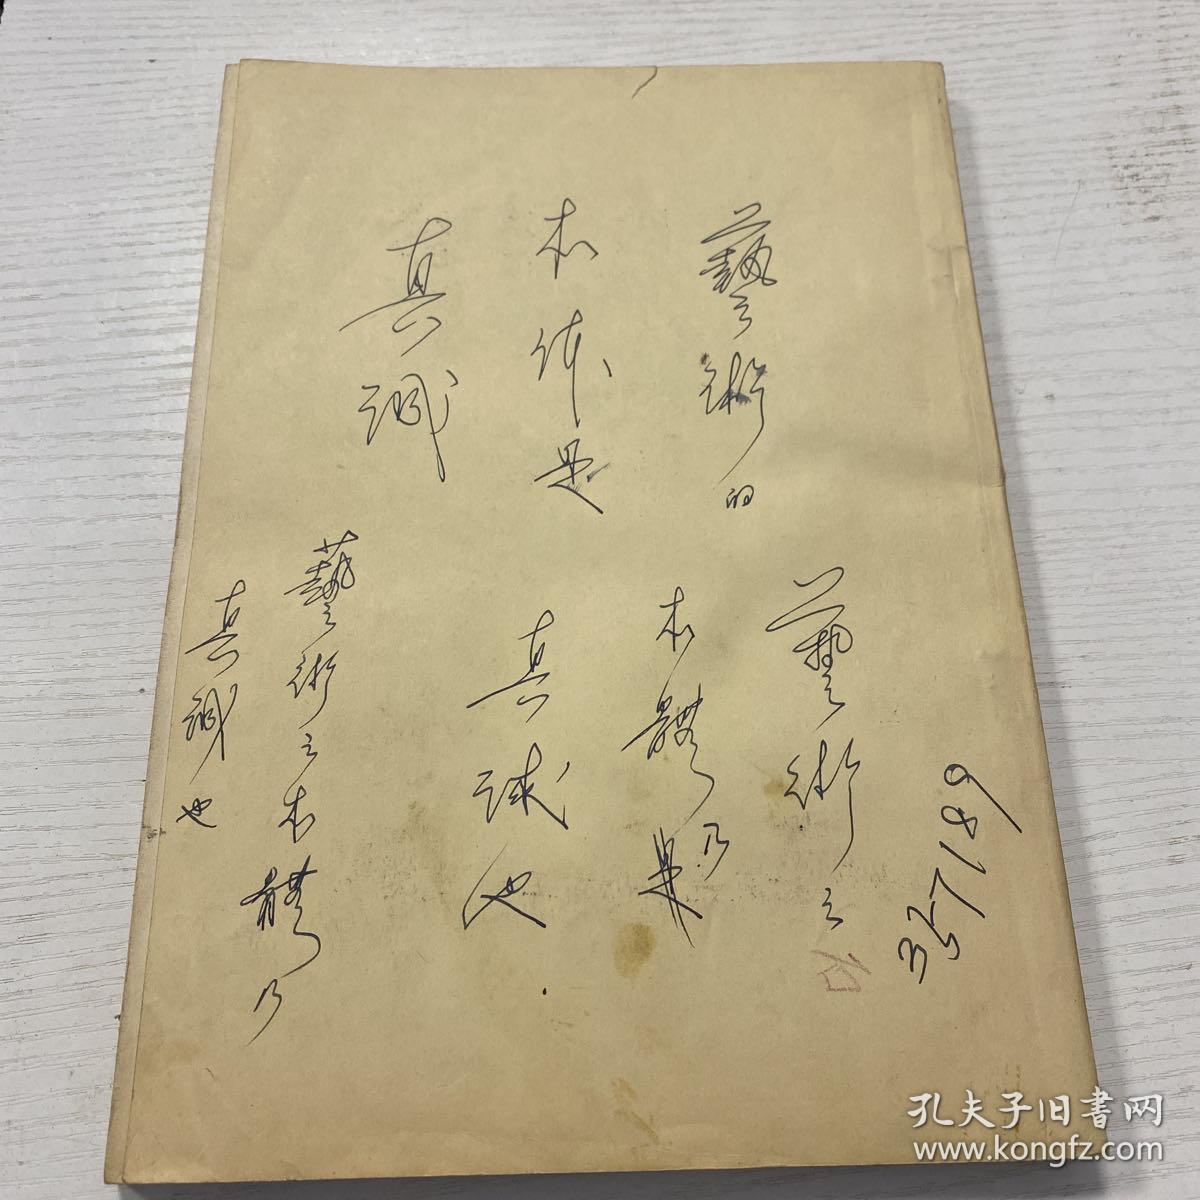 藝術的
本体是
真誠
藝術之
本體乃是
真誠也
藝術之本體乃
真誠也
357189
孔夫子旧書网
www.kongfz.com